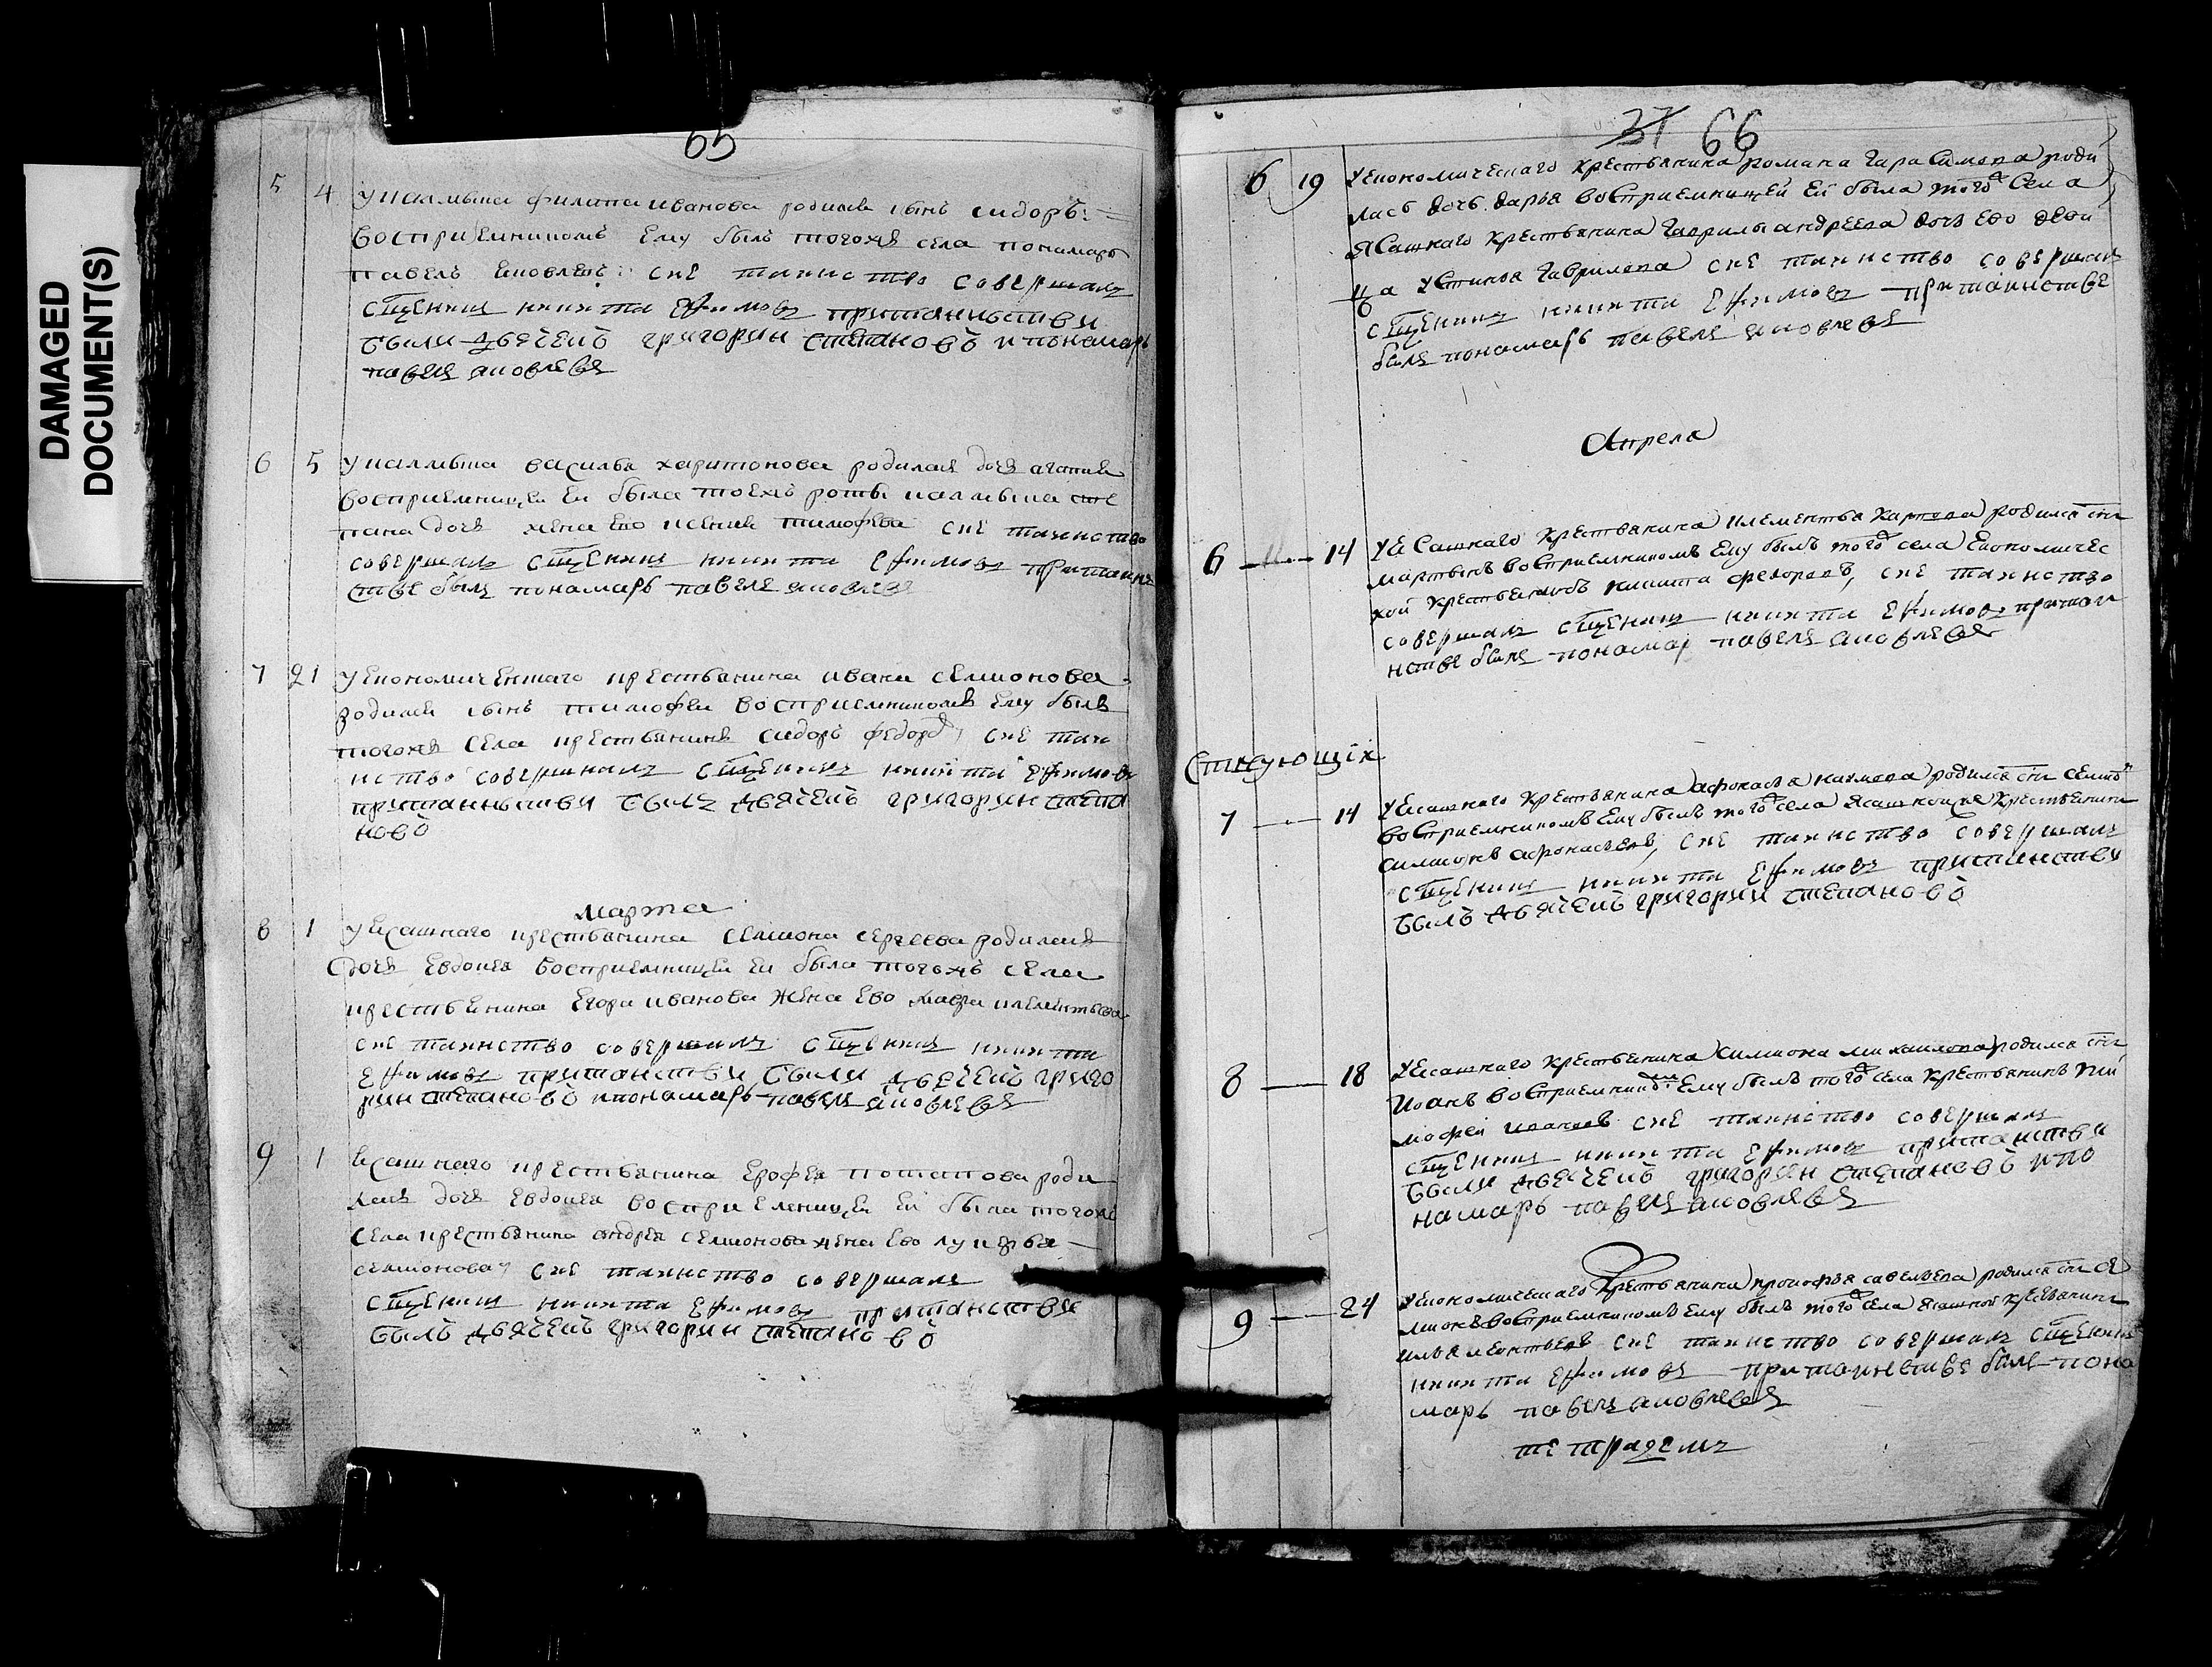 DAMAGED
DOCUMENT(S)
65
5 4 у калмыка филипа иванова родился сынъ сидоръ
восприемникомъ ему былъ тогожъ села пономарь
павелъ яковлевъ сие таинство совершалъ
сщенникъ никита ефимовъ притаинстви
были дьячекъ григорий степановъ и понамарь
павелъ яковлевъ
6 5 у калмыка василья харитонова родилася дочь агапия
восприемницей ей была тоежъ роты калмыка сте
пана дочь жена ево ксения тимофева сие таинство
совершалъ сщенникъ никита ефимовъ притаин
стве былъ понамарь павелъ яковлевъ
7 21 у економическаго крестьянина ивана семионова
родился сынъ тимофей восприемникомъ ему былъ
тогожъ села крестьянинъ сидоръ федоро сие таи
нство совершалъ сщенникъ никита ефимовъ
притаинстви былъ дьячекъ григорий степа
новъ
марта
8 1 у ясашнаго крестьянина семиона сергеева родилася
дочь евдокея восприемницей ей была тогожъ села
крестьянина егора иванова жена ево мавра клементьева
сие таинство совершалъ сщенникъ никита
ефимовъ притаинстви были дьячекъ григо
рий степановъ и понамарь павелъ яковлевъ
9 1 ясашнаго крестьянина ерофея потапова роди
лася дочь евдокея восприемницей ей была тогожъ
села крестьянина андрея семионова жена ево лукерья
семионова сие таинство совершалъ
сщенникъ никита ефимовъ притаинствя
былъ дьячекъ григорий степановъ
37 66
6 19 у економическаго крестьянина романа гарасимова роди
лась дочь дарья восприемницей ей была того села
ясашнаго крестьянина гаврилы андреева дочь ево деви
ца устинья гаврилова сие таинство совершалъ
сщенникъ никита ефимовъ притаинстве
былъ понамарь павелъ яковлевъ
Апреля
6 14 у ясашнаго крестьянина клементья карпова родился снъ
мартынъ восприемникомъ ему былъ того села економичес
кой крестьянинъ никита федоровъ, сие таинство
совершалъ сщенникъ никита ефимовъ притаи
нстве былъ понамарь павелъ яковлевъ
7 14 у ясашнаго крестьянина афонасья наумова родился снъ семионъ
восприемникомъ ему былъ того села ясашной крестьянинъ
симионъ афонасьевъ, сие таинство совершалъ
сщенникъ никита ефимовъ притаинстви
былъ дьячекъ григорий степановъ
8 18 у ясашнаго крестьянина симиона михаилова родился снъ
иоанъ восприемникомъ ему былъ того села крестьянинъ тим
мофей ивановъ сие таинство совершалъ
сщенникъ никита ефимовъ притаинствя
были дьячекъ григорий степановъ и по
намарь павелъ яковлевъ
9 24 у економическаго крестьянина прокофья савельева родился снъ се
мионъ восприемникомъ ему былъ того села ясашной крестьянинъ
илья леонтьевъ сие таинство совершалъ сщенникъ
никита ефимовъ притаинстве былъ поно
марь павелъ яковлевъ